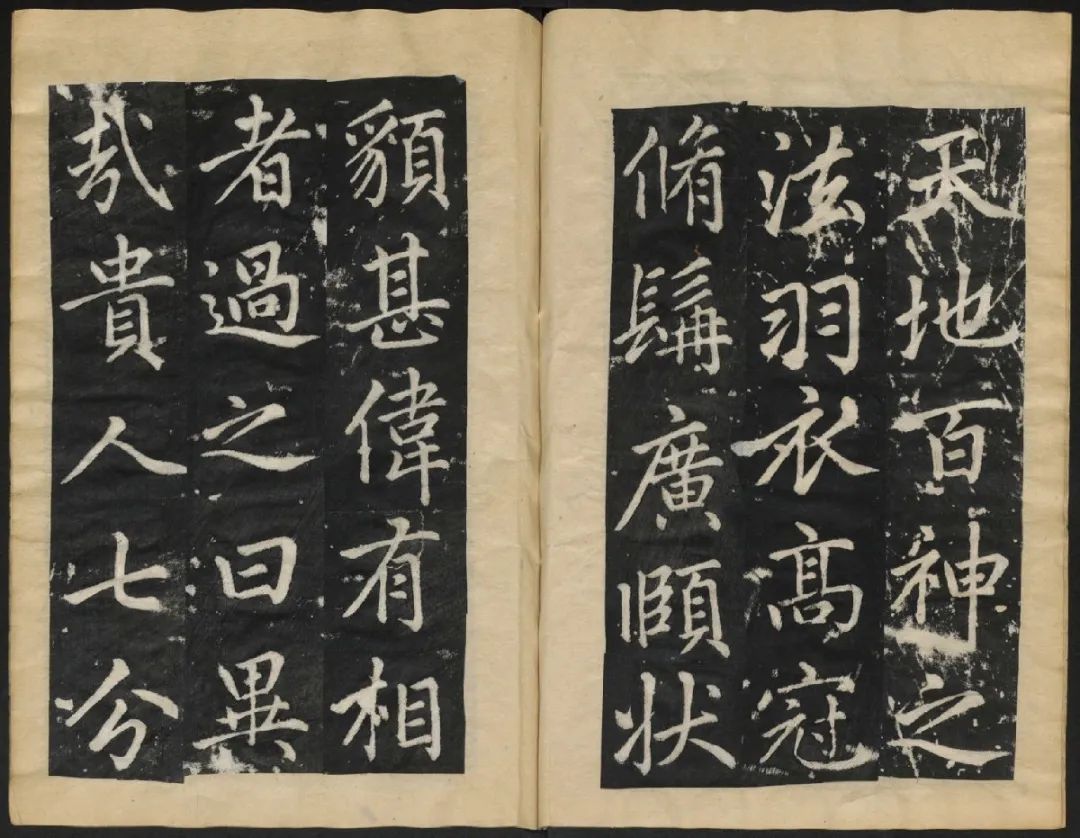 天地百神之
法羽衣髙冠
脩髯廣頤狀
貌甚偉有相
者過之曰異
哉貴人七分